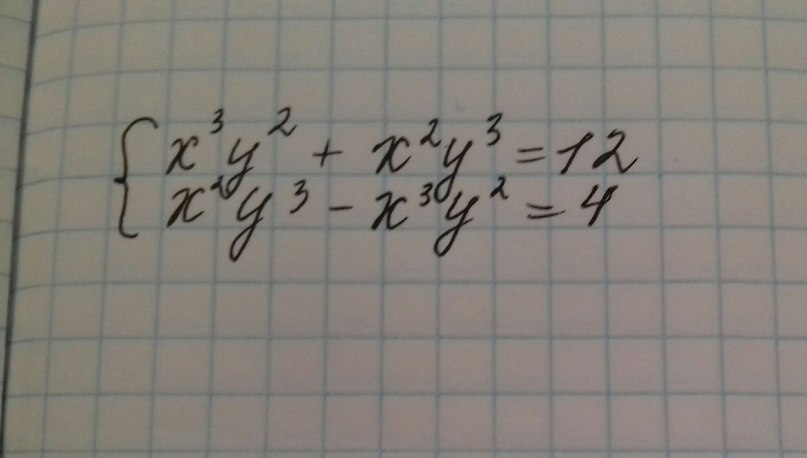 x³y² + x²y³ = 12
x²y³ - x³y² = 4